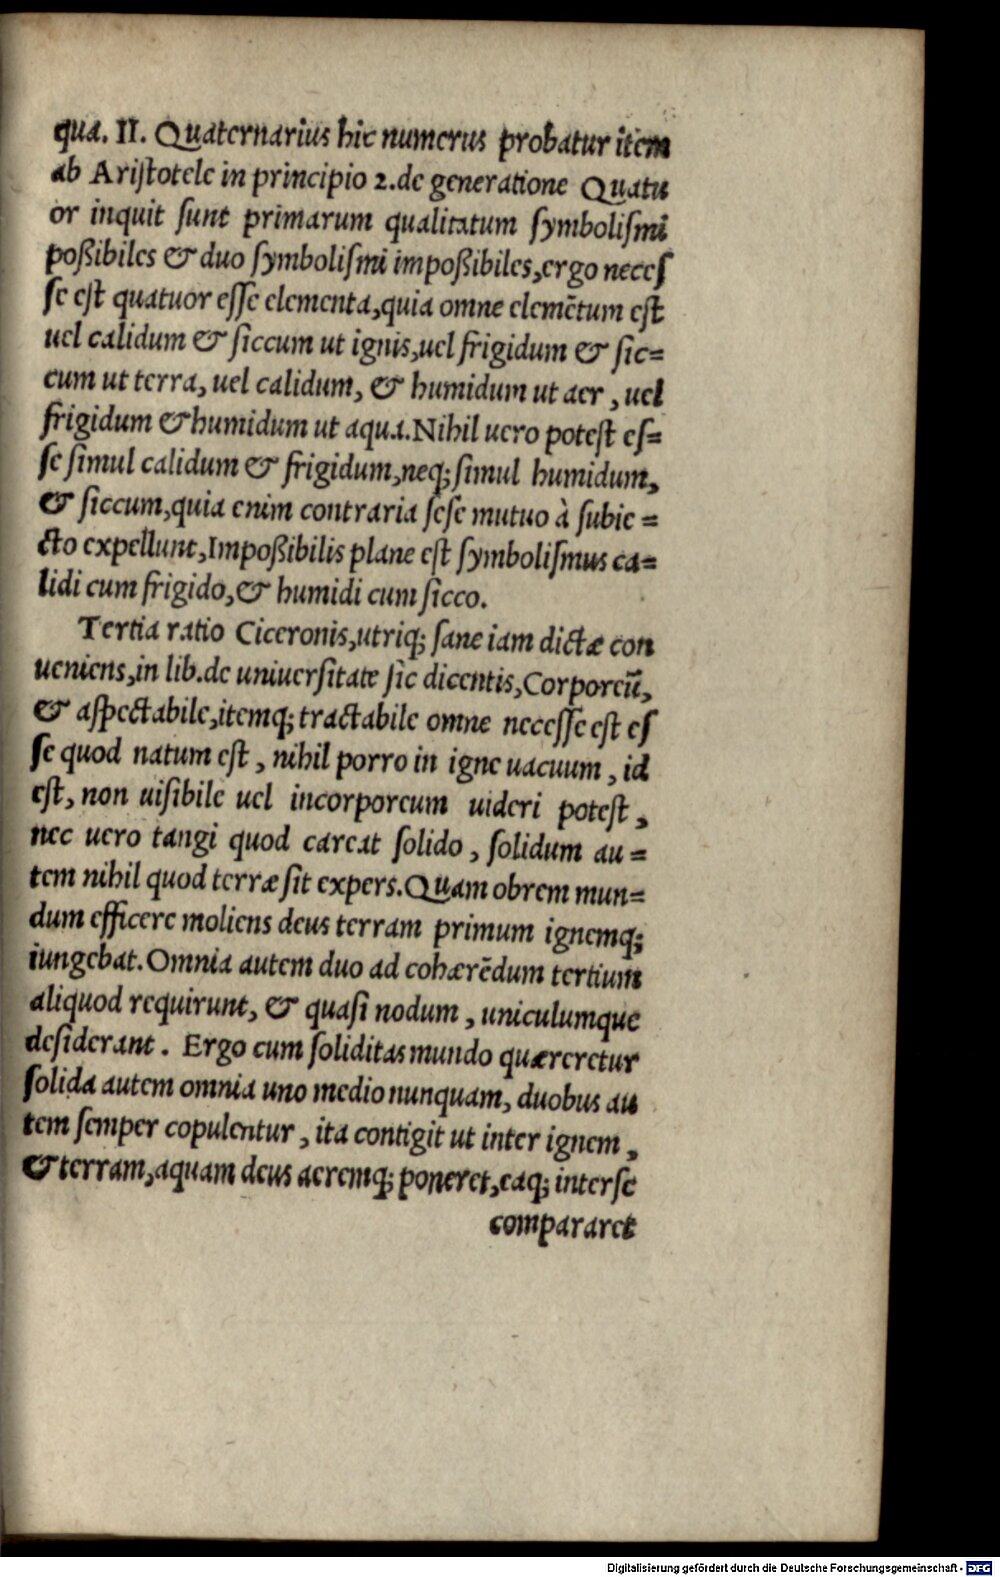 qua. II. Quaternarius hic numerus probatur item
ab Aristotele in principio 2. de generatione Quatu
or inquit sunt primarum qualitatum symbolismi
poßibiles & duo symbolismi impoßibiles, ergo neces
se est quatuor esse elementa, quia omne elemẽtum est
uel calidum & siccum ut ignis, uel frigidum & sic=
cum ut terra, uel calidum, & humidum ut aer, uel
frigidum & humidum ut aqua. Nihil uero potest es=
se simul calidum & frigidum, neq; simul humidum,
& siccum, quia enim contraria sese mutuo à subie=
cto expellunt, Impoßibilis plane est symbolismus ca=
lidi cum frigido, & humidi cum sicco.
Tertia ratio Ciceronis, utriq; sane iam dictæ con
ueniens, in lib. de uniuersitate sic dicentis, Corporeũ,
& aspectabile, itemq; tractabile omne necesse est es
se quod natum est, nihil porro in igne uacuum, id
est, non uisibile uel incorporeum uideri potest,
nec uero tangi quod careat solido, solidum au=
tem nihil quod terræ sit expers. Quam obrem mun=
dum efficere moliens deus terram primum ignemq;
iungebat. Omnia autem duo ad cohærẽdum tertium
aliquod requirunt, & quasi nodum, uniculumque
desiderant. Ergo cum soliditas mundo quæreretur
solida autem omnia uno medio nunquam, duobus au
tem semper copulentur, ita contigit ut inter ignem,
& terram, aquam deus aeremq; poneret, eaq; inter se
compararet
Digitalisierung gefördert durch die Deutsche Forschungsgemeinschaft - DFG